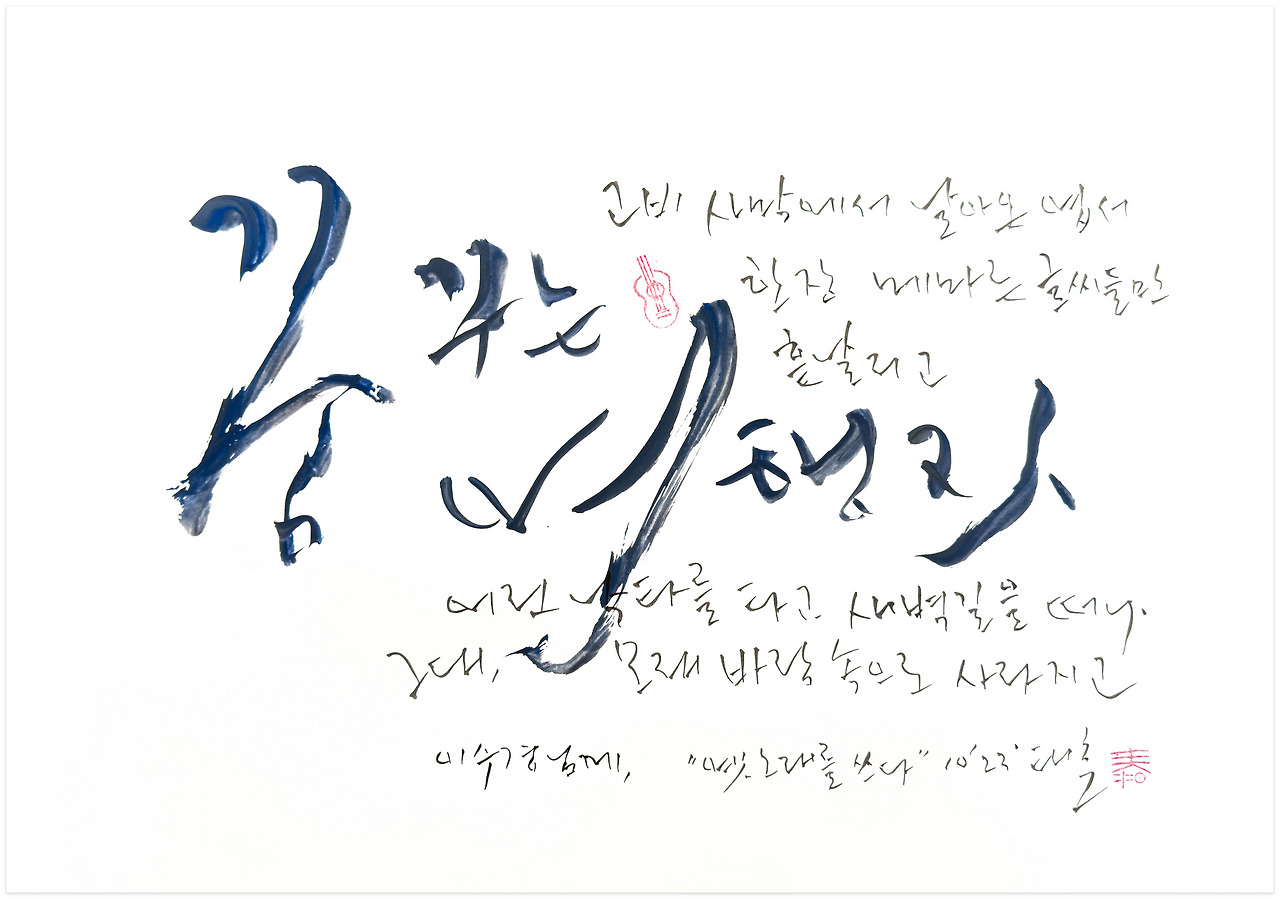 고비 사막에서 날아온 엽서
한장 메마른 글씨들만
흩날리고
꿈 꾸는 여행자
어린 낙타를 타고 새벽길을 떠나.
그대, 모래 바람 속으로 사라지고
이수경님께, "옛노래를 쓰다" 10'23' 태호